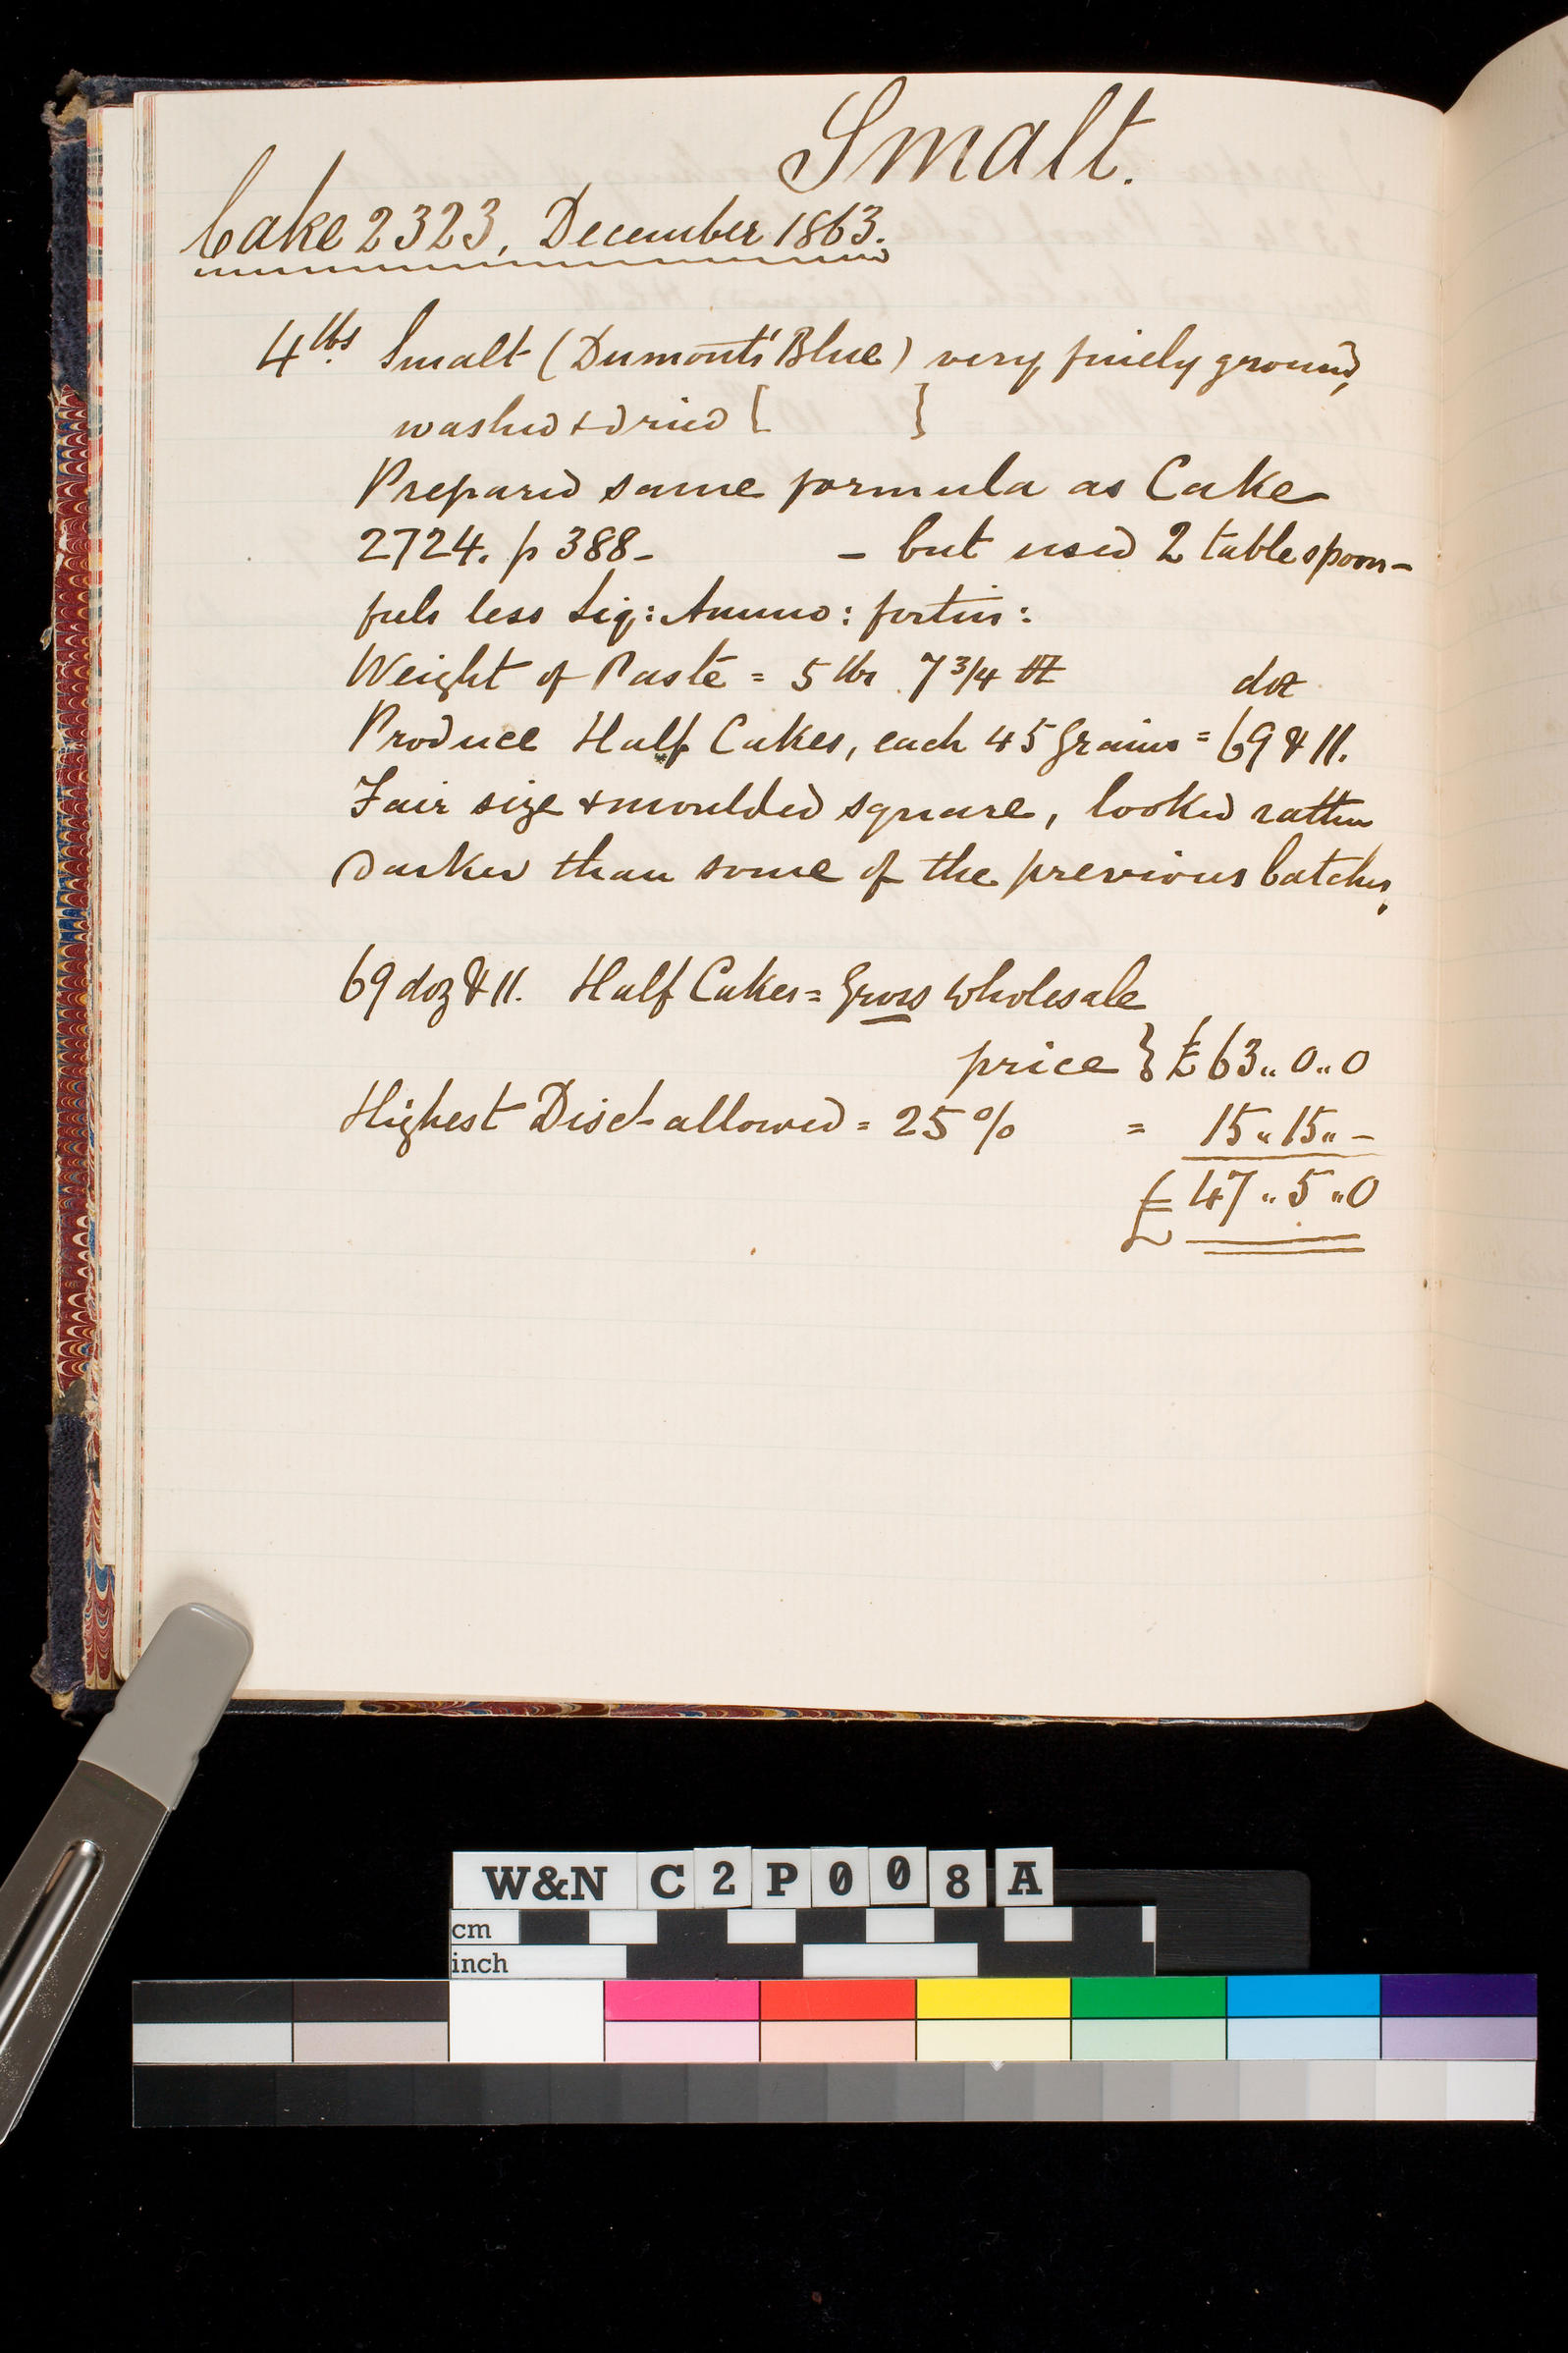 Smalt.
Cake 2323, December 1863.
4 lbs. Smalt (Dumonts' Blue) very finely ground,
washed & dried [ }
Prepared same formula as Cake
2724. p 388 - - but used 2 tablespoon-
fuls less Liq: Ammo: fortis:
Weight of Paste = 5 lbs 7 3/4 oz doz
Produce Half Cakes, each 45 Grains = 69 & 11.
Fair size & moulded square, looked rather
darker than some of the previous batches,
69 doz & 11. Half Cakes = Gross wholesale
price } £63 „ 0 „ 0
Highest Disct allowed = 25 % = 15 „ 15 „ -
£ 47 „ 5 „ 0
W&N C2P008A
cm
inch